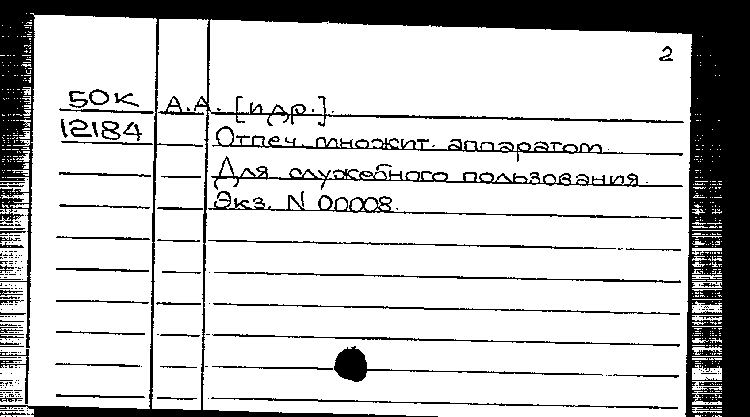 2
50К А.А. [и др.].
12184 Отпеч. множит. аппаратом.
Для служебного пользования.
Экз. N 00008.